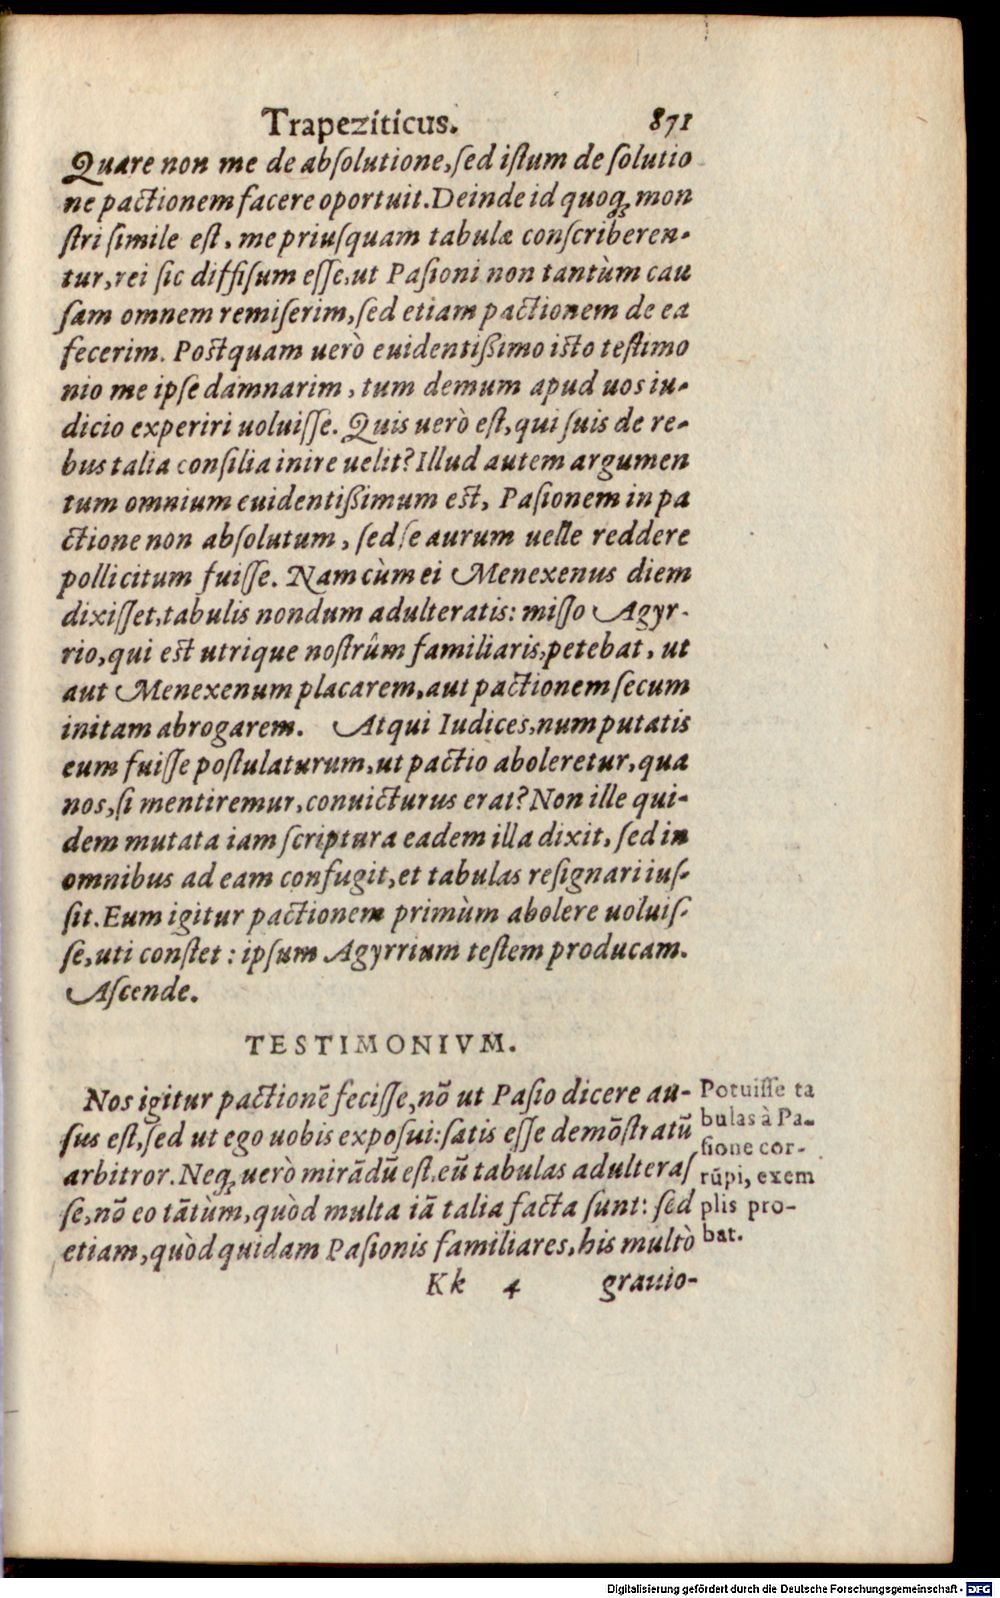 Trapeziticus. 871
Quare non me de absolutione, sed istum de solutio
ne pactionem facere oportuit. Deinde id quoq; mon
stri simile est, me priusquam tabulæ conscriberen-
tur, rei sic diffisum esse, ut Pasioni non tantùm cau
sam omnem remiserim, sed etiam pactionem de ea
fecerim. Postquam uerò euidentißimo isto testimo
nio me ipse damnarim, tum demum apud uos iu-
dicio experiri uoluisse. Quis uerò est, qui suis de re-
bus talia consilia inire uelit? Illud autem argumen
tum omnium euidentißimum est, Pasionem in pa
ctione non absolutum, sed se aurum uelle reddere
pollicitum fuisse. Nam cùm ei Menexenus diem
dixisset, tabulis nondum adulteratis: misso Agyr-
rio, qui est utrique nostrûm familiaris, petebat, ut
aut Menexenum placarem, aut pactionem secum
initam abrogarem. Atqui Iudices, num putatis
eum fuisse postulaturum, ut pactio aboleretur, qua
nos, si mentiremur, conuicturus erat? Non ille qui-
dem mutata iam scriptura eadem illa dixit, sed in
omnibus ad eam confugit, et tabulas resignari ius-
sit. Eum igitur pactionem primùm abolere uoluis-
se, uti constet: ipsum Agyrrium testem producam.
Ascende.
TESTIMONIVM.
Nos igitur pactionē fecisse, nō ut Pasio dicere au-
sus est, sed ut ego uobis exposui: satis esse demōstratū
arbitror. Neq; uerò mirādū est, eū tabulas adulteras
se, nō eo tātùm, quòd multa iā talia facta sunt: sed
etiam, quòd quidam Pasionis familiares, his multò
Kk 4 grauio-
Potuisse ta
bulas à Pa-
sione cor-
rūpi, exem
plis pro-
bat.
Digitalisierung gefördert durch die Deutsche Forschungsgemeinschaft - DFG